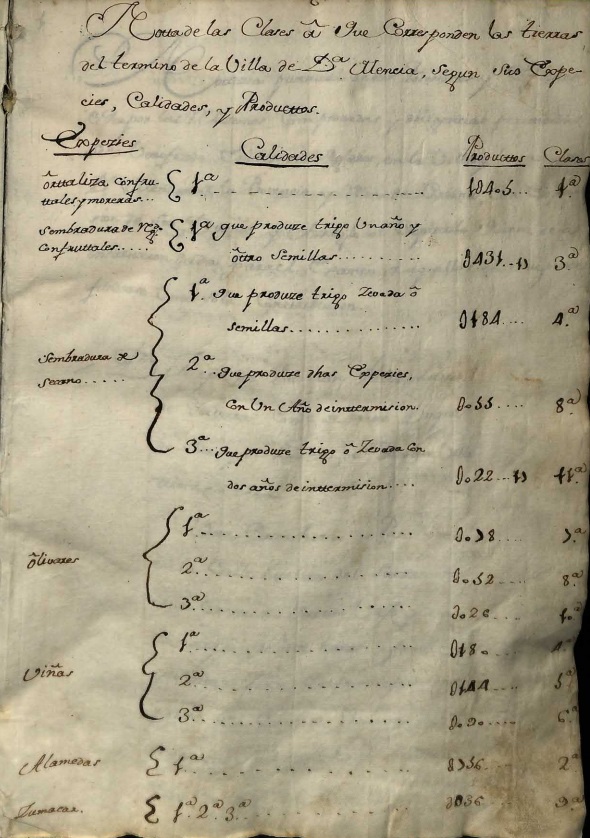 Notta de las Clases â Que Corresponden las tierras
del termino de la Villa de Alencia, Segun Sus Expe-
cies, Calidades, y Producttos.
Expezies Calidades Producttos Clases
ôrttaliza confru-
ttales y moreras... 1ª 1ª
Sembradura de
Con fruttales..... 1ª que produze trigo Un año y
ôttro Semillas.......... 3ª
1ª que produze trigo Zevada ô
semillas.............. 0184.... 4ª
Sembradura de
secano.....
2ª que produze dhas Expezies,
Con Un Año de inttermision. 0.55.... 8ª
3ª... que produze trigo ô Zevada con
dos años de inttermision.... 0.22 11ª
ôlivares
1ª
2ª 0.52.... 8ª
3ª 0.26....
Viñas
1ª 018.... 4ª
2ª 0144.... 5ª
3ª 6ª
Alamedas 1ª 2ª
Zumacar. 1ª 2ª 3ª 9ª